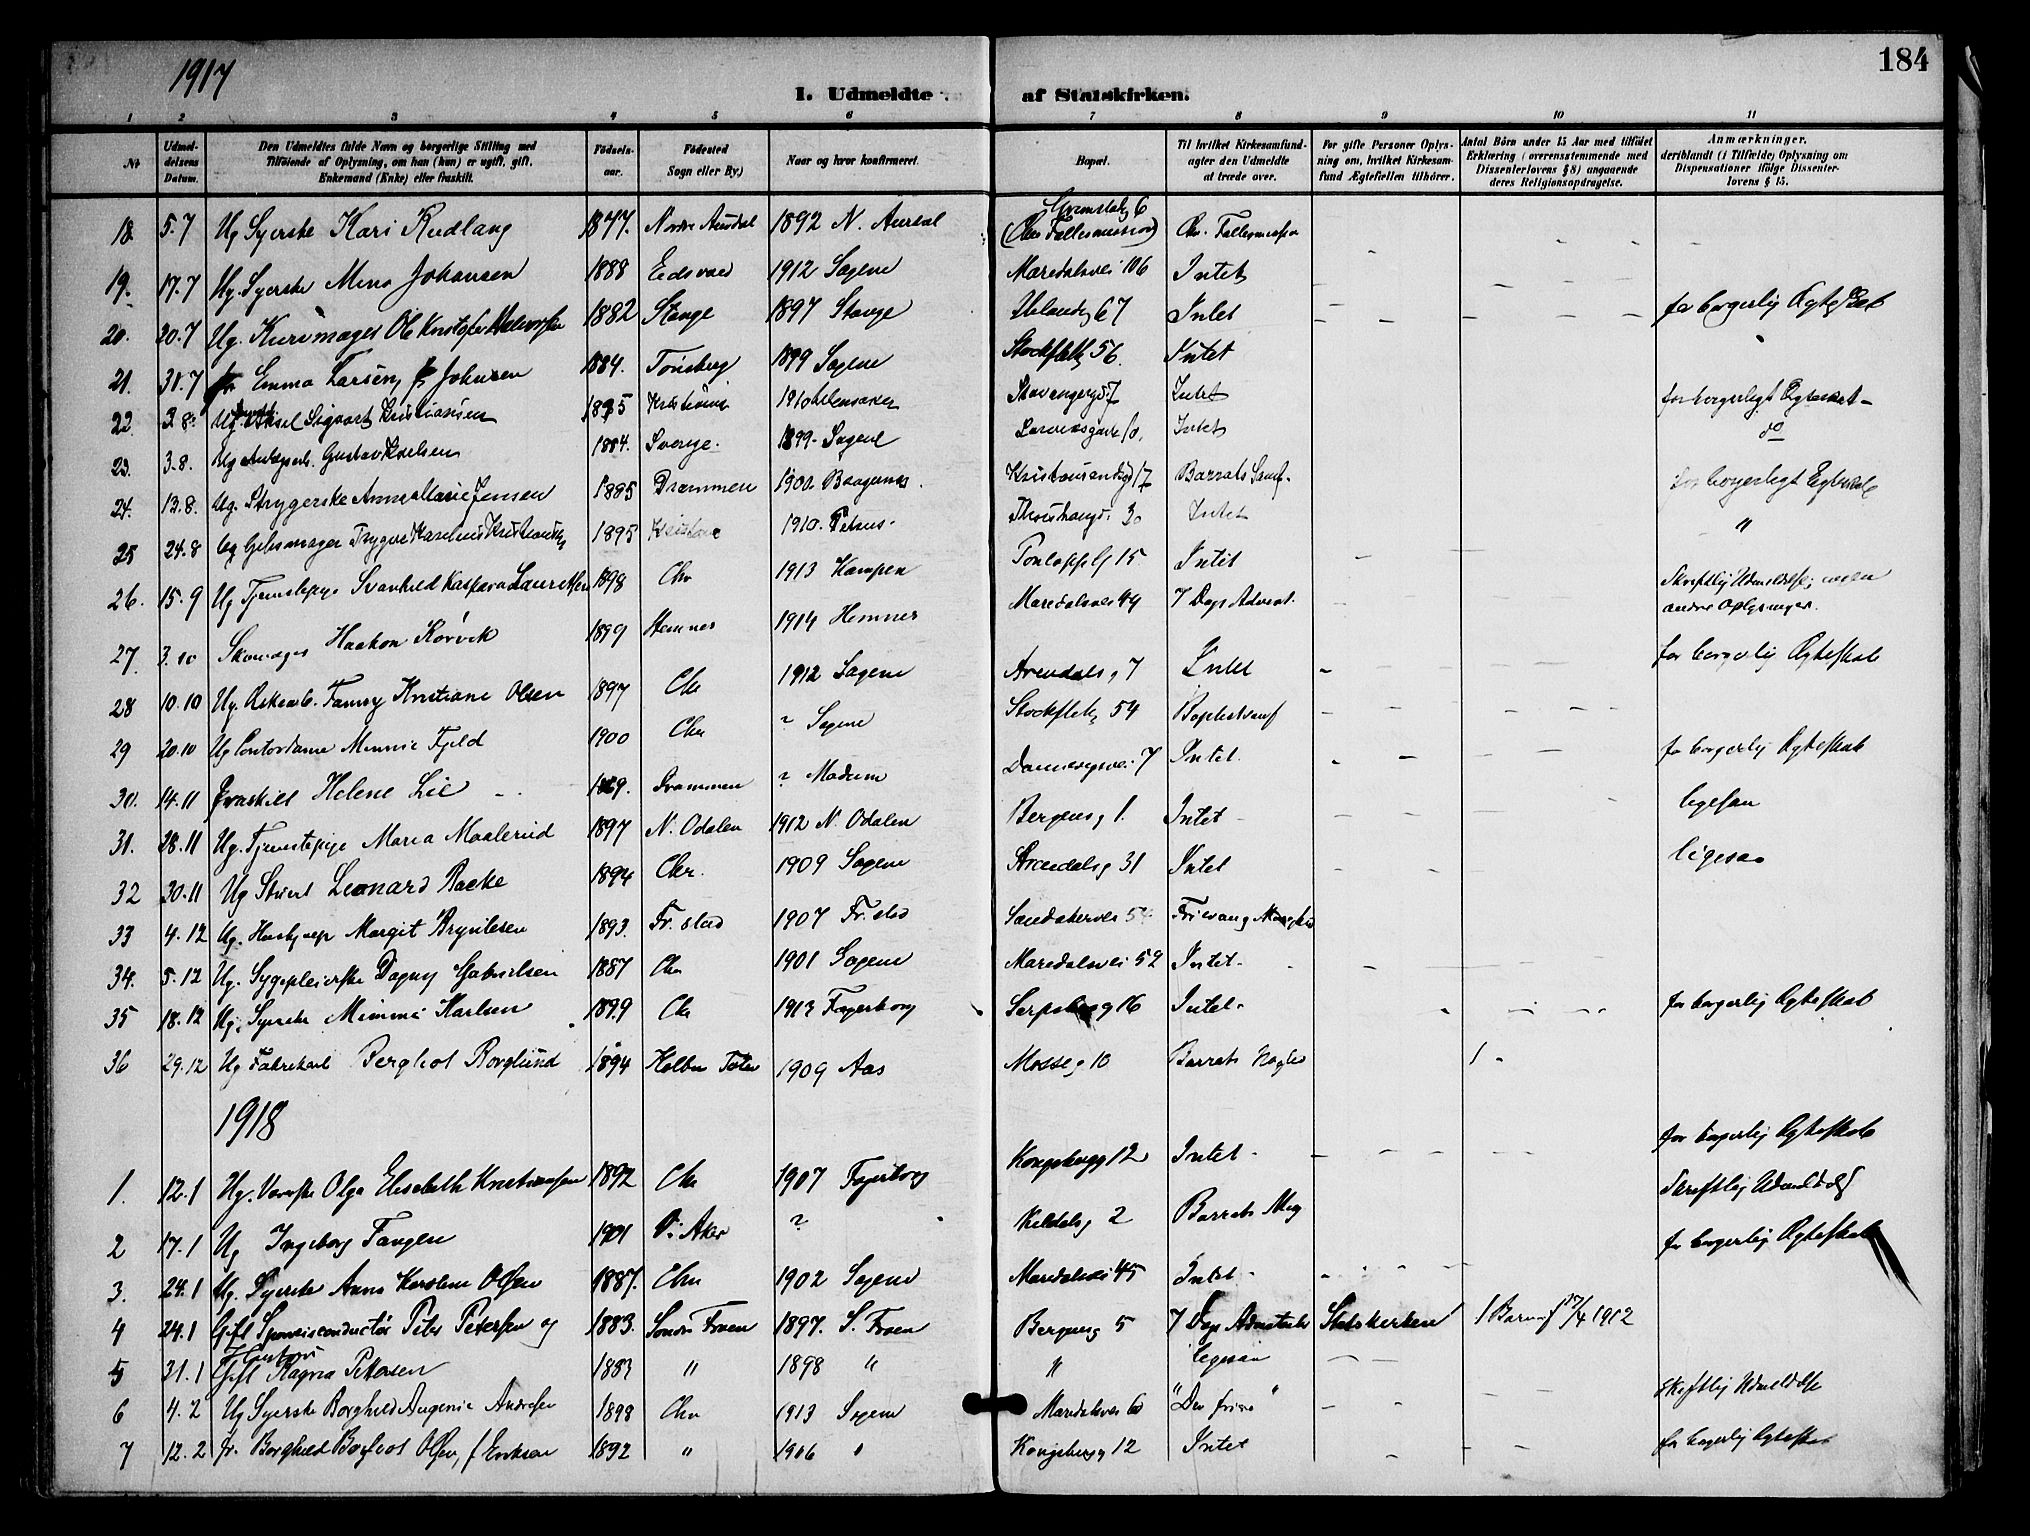 1917
184
I. Udmeldte af Statskirken.
1 2 3 4 5 6 7 8 9 10 11
No
Udmeldelsens Datum.
Den Udmeldtes fulde Navn og borgerlige Stilling med
Tilføiende af Oplysning, om han (hun) er ugift, gift,
Enkemand (Enke) eller fraskilt.
Fødselsaar.
Fødested
Sogn eller By.)
Naar og hvor konfirmeret.
Bopæl.
Til hvilket Kirkesamfund
agter den Udmeldte
at træde over.
For gifte Personer Oplysning om, hvilket Kirkesamfund Ægtefællen tilhører.
Antal Børn under 15 Aar med tilføiet
Erklæring (overensstemmende med
Dissenterlovens § 8) angaaende
deres Religionsopdragelse.
Anmærkninger,
deriblandt (i Tilfælde) Oplysning om
Dispensationer ifølge Dissenterlovens § 15.
18. 5.7 Ug Syerske Kari Rudlang 1877. Nordre Aurdal 1892 N. Aurdal
19. 17.7 Ug. Syerske Mina Johansen 1888 Eidsvold 1912 Sagene Maridalsvei 106 Intet
20. 20.7 Ug. Ole Kristofer Halvorsen 1882 Stange 1897 Stange Uelandsg 67 Intet for borgerlig Ægteskab
21. 31.7 Emma Larsen, f. Johnsen 1884. Tønsberg 1899 Sagene Stockfletg 56. Intet
22. 3.8. Ug. Aksel Sigvart Kristiansen 1895 Kristiania 1910 Stavangerg 7 Intet for borgerligt Ægteskab
23. 3.8. Ug Gustav 1884. Sverige. 1899 Sagene Intet do
24. 13.8. Ug. Strygerske Anna Marie Jensen 1885 Drammen 1901 Bragernes. Kristiansandsg 17 Barrats Samf. for borgerligt Egteskab
25 24.8 Ug Trygve Karelius Kristiansen 1895 Kristiania 1910. Petrus. 30 Intet "
26. 15.9 Ug Tjenestepige Svanhild Kaspara Lauretsen 1898 Chr 1913 Kampen 15 Intet
Maridalsvei 44 7 Dags Advent. Skriftlig Udmeldelse, uden
andre Oplysninger.
27. 3.10 Skomager Haakon Rørvik 1899 Hemnes 1914 Hemnes
28 10.10 Ug. Fanny Kristiane Olsen 1897 Chr 1912 Sagene Arendalsg 7 Intet for borgerlig Ægteskab
29 20.10 Ug Contordame Minnie Fjeld 1900 Chr ? Sagene Stockfletg 54 Baptistsamf
30. 14.11 Fraskilt Helene Lie 1869. Drammen ? Modum Dannevigsvei 7 Intet. for borgerlig Ægteskab
31. 28.11 Ug. Tjenestepige Maria Maalerud 1897 N. Odalen 1912 N. Odalen Bergensg 1. Intet ligesaa
32 30.11 Ug Leonard Backe 1894 Chr. 1909 Sagene Arendalsg 31 Intet ligesaa
33 4.12 Ug. Margit Brynilsen 1893. Fr. stad 1907 Fr. stad Sandakervei
34. 5.12 Ug. Sygepleierske Dagny Gabrielsen 1887 Chr 1901 Sagene Maridalsvei 52 Intet
35 18.12 Ug. Syerske Mimmi Karlsen 1899 Chr 1913 Fagerborg Sarpsborgg 16 Intet for borgerlig Ægteskab
36 29.12 Ug Fabrikarb Bergliot Borglund 1894 Kolbu Toten 1909 Aas Mosseg 10 Barrats 1
1918
1. 12.1 Ug. Olga Elisabeth Kristiansen 1892 Chr 1907 Fagerborg Kongsbergg 12 Intet for borgerlig Ægteskab
2 17.1 Ug Ingeborg Tangen 1901 V. Aker ? 2 Barrats Meg Skriftlig Udmeldelse
3. 24.1 Ug. Syerske Anna Karoline Olsen 1887. Chr 1902 Sagene Maridalsvei 45 Intet for borgerlig Ægteskab
4 24.1 Gift Sporveisconductør Peter Petersen og 1883. Søndre Froen 1897. S. Froen Bergensg 5 7 Dags Adventister Statskirken 1 Barn f 17/4 1912
Hustru
5 31.1 Gift Ragna Petersen 1883 " 1898 " " ligesaa
6 4.2 Ug Syerske Borghild Augenie Andresen 1898 Chr 1913 Sagene Maridalsvei "Den frivæ" Skriftlig Udmeldelse
7 12.2 fr. Borghild Bergliot Olsen, f Eriksen 1892 " 1906 " Kongsbergg 12 Intet for borgerlig Ægteskab